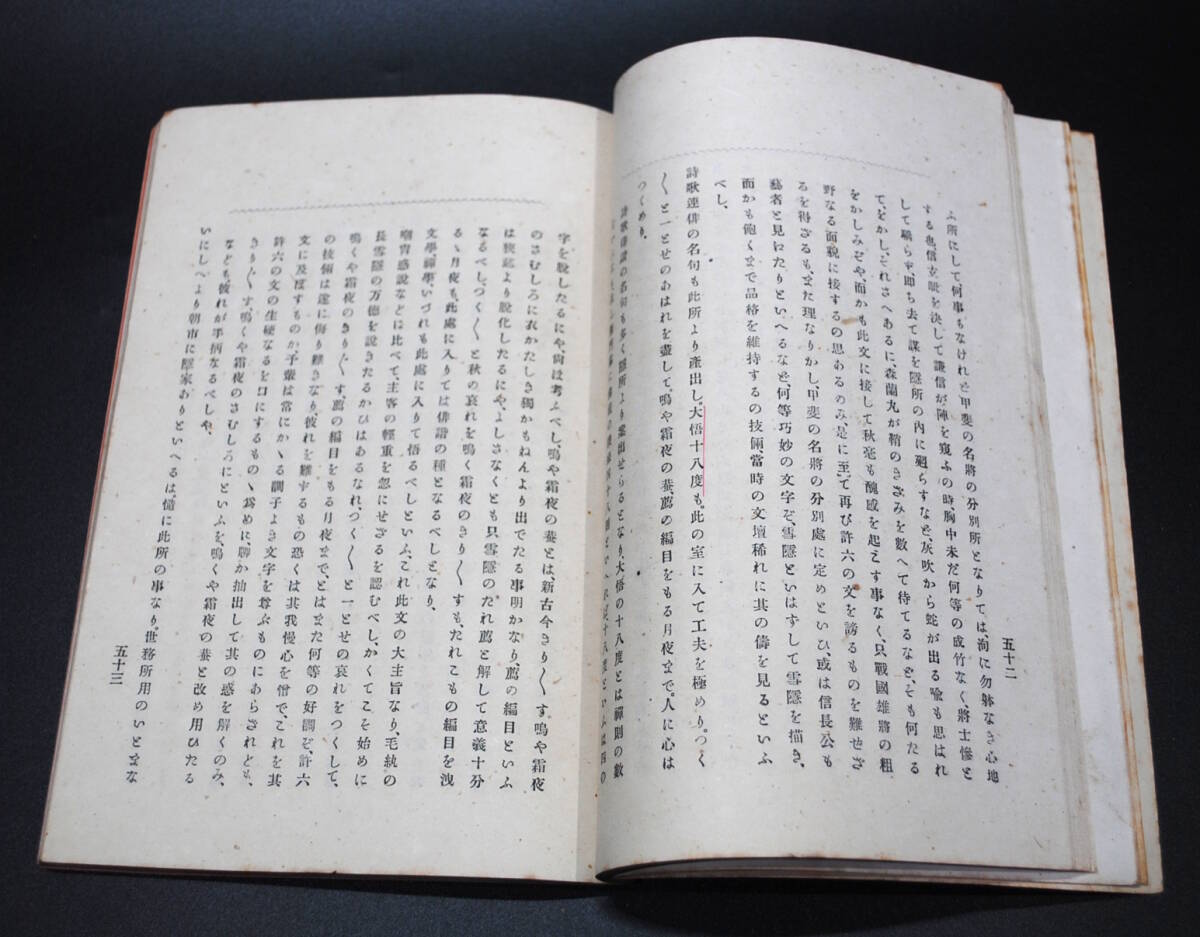 五十二
ふ所にして何事もなけれど甲斐の名將の分別所となりては洵に勿躰なき心地
する也信玄眦を決して謙信が陣を窺ふの時、胸中未だ何等の成竹なく將士慘と
して碯らず、即ち去て謀を隱所の内に廻らすなど、灰吹から蛇が出る喩も思はれ
て、をかし、それさへあるに、森蘭丸が鞘のきざみを數へて待てるなど、そも何たる
をかしみぞや、而かも此文に接して秋毫も醜感を起えす事なく、只戰國雄將の粗
野なる面貌に接するの思あるのみ、是に至て再び許六の文を謗るものを難せざ
るを得ざるも、また理なりかし、甲斐の名將の分別處に定めといひ、或は信長公も
藝者と見ゐたりといへるなど、何等巧妙の文字ぞ、雪隱といはずして雪隱を描き、
面かも飽くまで品格を維持するの技倆、當時の文壇稀れに其の儔を見るといふ
べし、
詩歌連俳の名句も此所より產出し。大悟十八度も。此の室に入て工夫を極めり。つく
〱と一とせのあはれを盡して。鳴や霜夜の蛬、薦の編目をもる月夜まで。人に心は
つくめり。
詩歌俳諧の名句も多く隱所より案出せらるとなり、大悟の十八度とは禪則の數
字を脫したるにや、尙ほ考ふべし、鳴や霜夜の蛬とは、新古今きり〱す鳴や霜夜
のさむしろに衣かたしき獨かもねんより出でたる事明かなり、薦の編目といふ
は狹莚より脫化したるにや、よしさなくとも只雪隱のたれ薦と解して意義十分
なるべし、つく〱と秋の哀れを鳴く霜夜のきり〱すも、たれこもの編目を洩
るゝ月夜も、此處に入りては俳諧の種となるべしとなり、
文學、禪學、いづれも此處に入りて悟るべしといふ、これ此文の大主旨なり、毛紈の
嘲宵惑説などに比べて主客の輕重を忽にせざるを認むべし、かくてこそ始めに
長雪隱の万德を說きたるかひはあるなれ、つく〱と一とせの哀れをつくして、
鳴くや霜夜のきり〱す、薦の編目をもる月夜まで、とはまた何等の好調ぞ、許六
の技倆は遂に侮り難きなり、彼れを難するもの恐くは其我慢心を憎で、これを其
文に及ぼすものか予輩は常にかゝる調子よき文字を尊ぶものにあらざれども、
許六の文の生硬なるを口にするものゝ爲めに、聊か抽出して其の惑を解くのみ、
きり〱す鳴くや霜夜のさむしろにといふを、鳴くや霜夜の蛬と改め用ひたる
なども彼れが手柄なるべしや、
いにしへより朝市に隱家ありといへるは、慥に此所の事なり。世務所用のいとまな
五十三